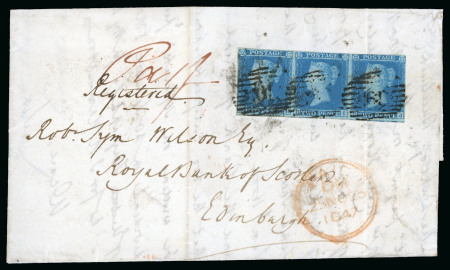 POSTAGE POSTAGE POSTAGE
TWO PENCE TWO PENCE TWO PENCE
Paid
Registered
Robt. Sym Wilson Esq.
Royal Bank of Scotland
Edinburgh